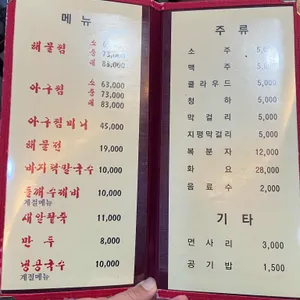 메뉴
해물찜 소
중 73,000
대 83,000
아구찜 소 63,000
중 73,000
대 83,000
아구찜미니 45,000
해물전 19,000
바지락칼국수 10,000
들깨수제비 10,000
계절메뉴
새알팥죽 11,000
만두 8,000
냉콩국수 10,000
계절메뉴
주류
소주 5,000
맥주 5,000
클라우드 5,000
청하 5,000
막걸리 5,000
지평막걸리 5,000
복분자 12,000
화요 28,000
음료수 2,000
기타
면사리 3,000
공기밥 1,500